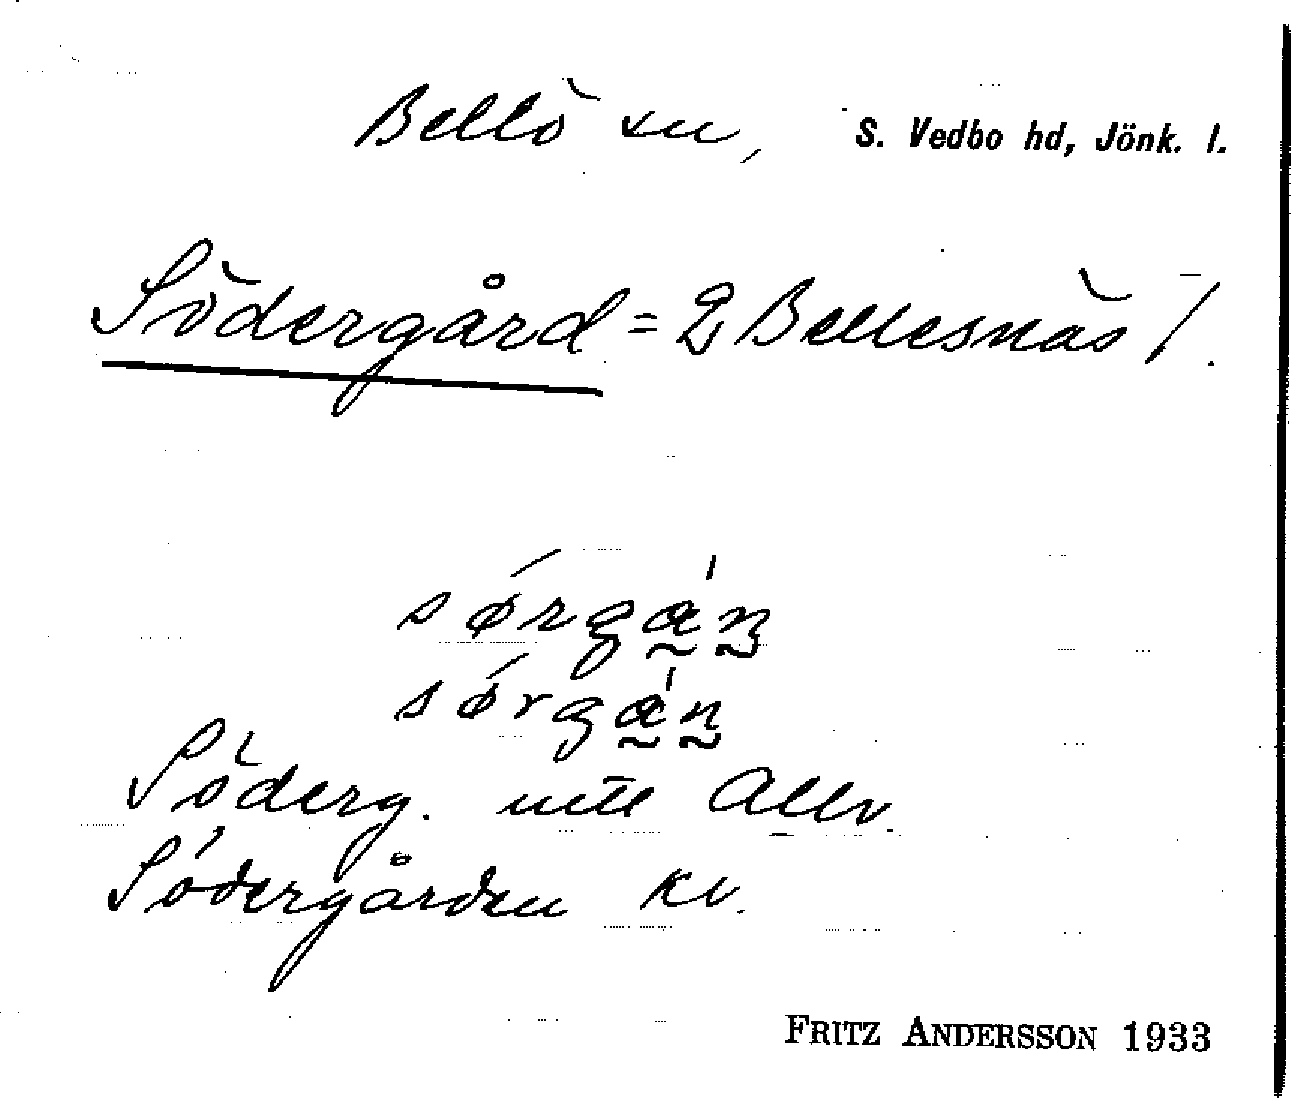 Bellö sn, S. Vedbo hd, Jönk. l.
Södergård = 2 Bellesnäs /.
Söderg. mtl Allv.
Södergården kv.
FRITZ ANDERSSON 1933